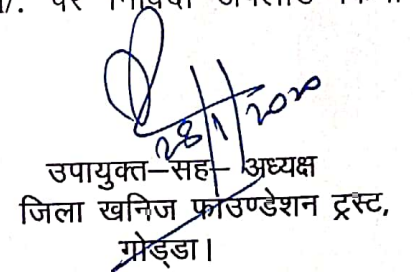 पर निविदा
28/1/2020
उपायुक्त–सह– अध्यक्ष
जिला खनिज फाउण्डेशन ट्रस्ट,
गोड्डा।